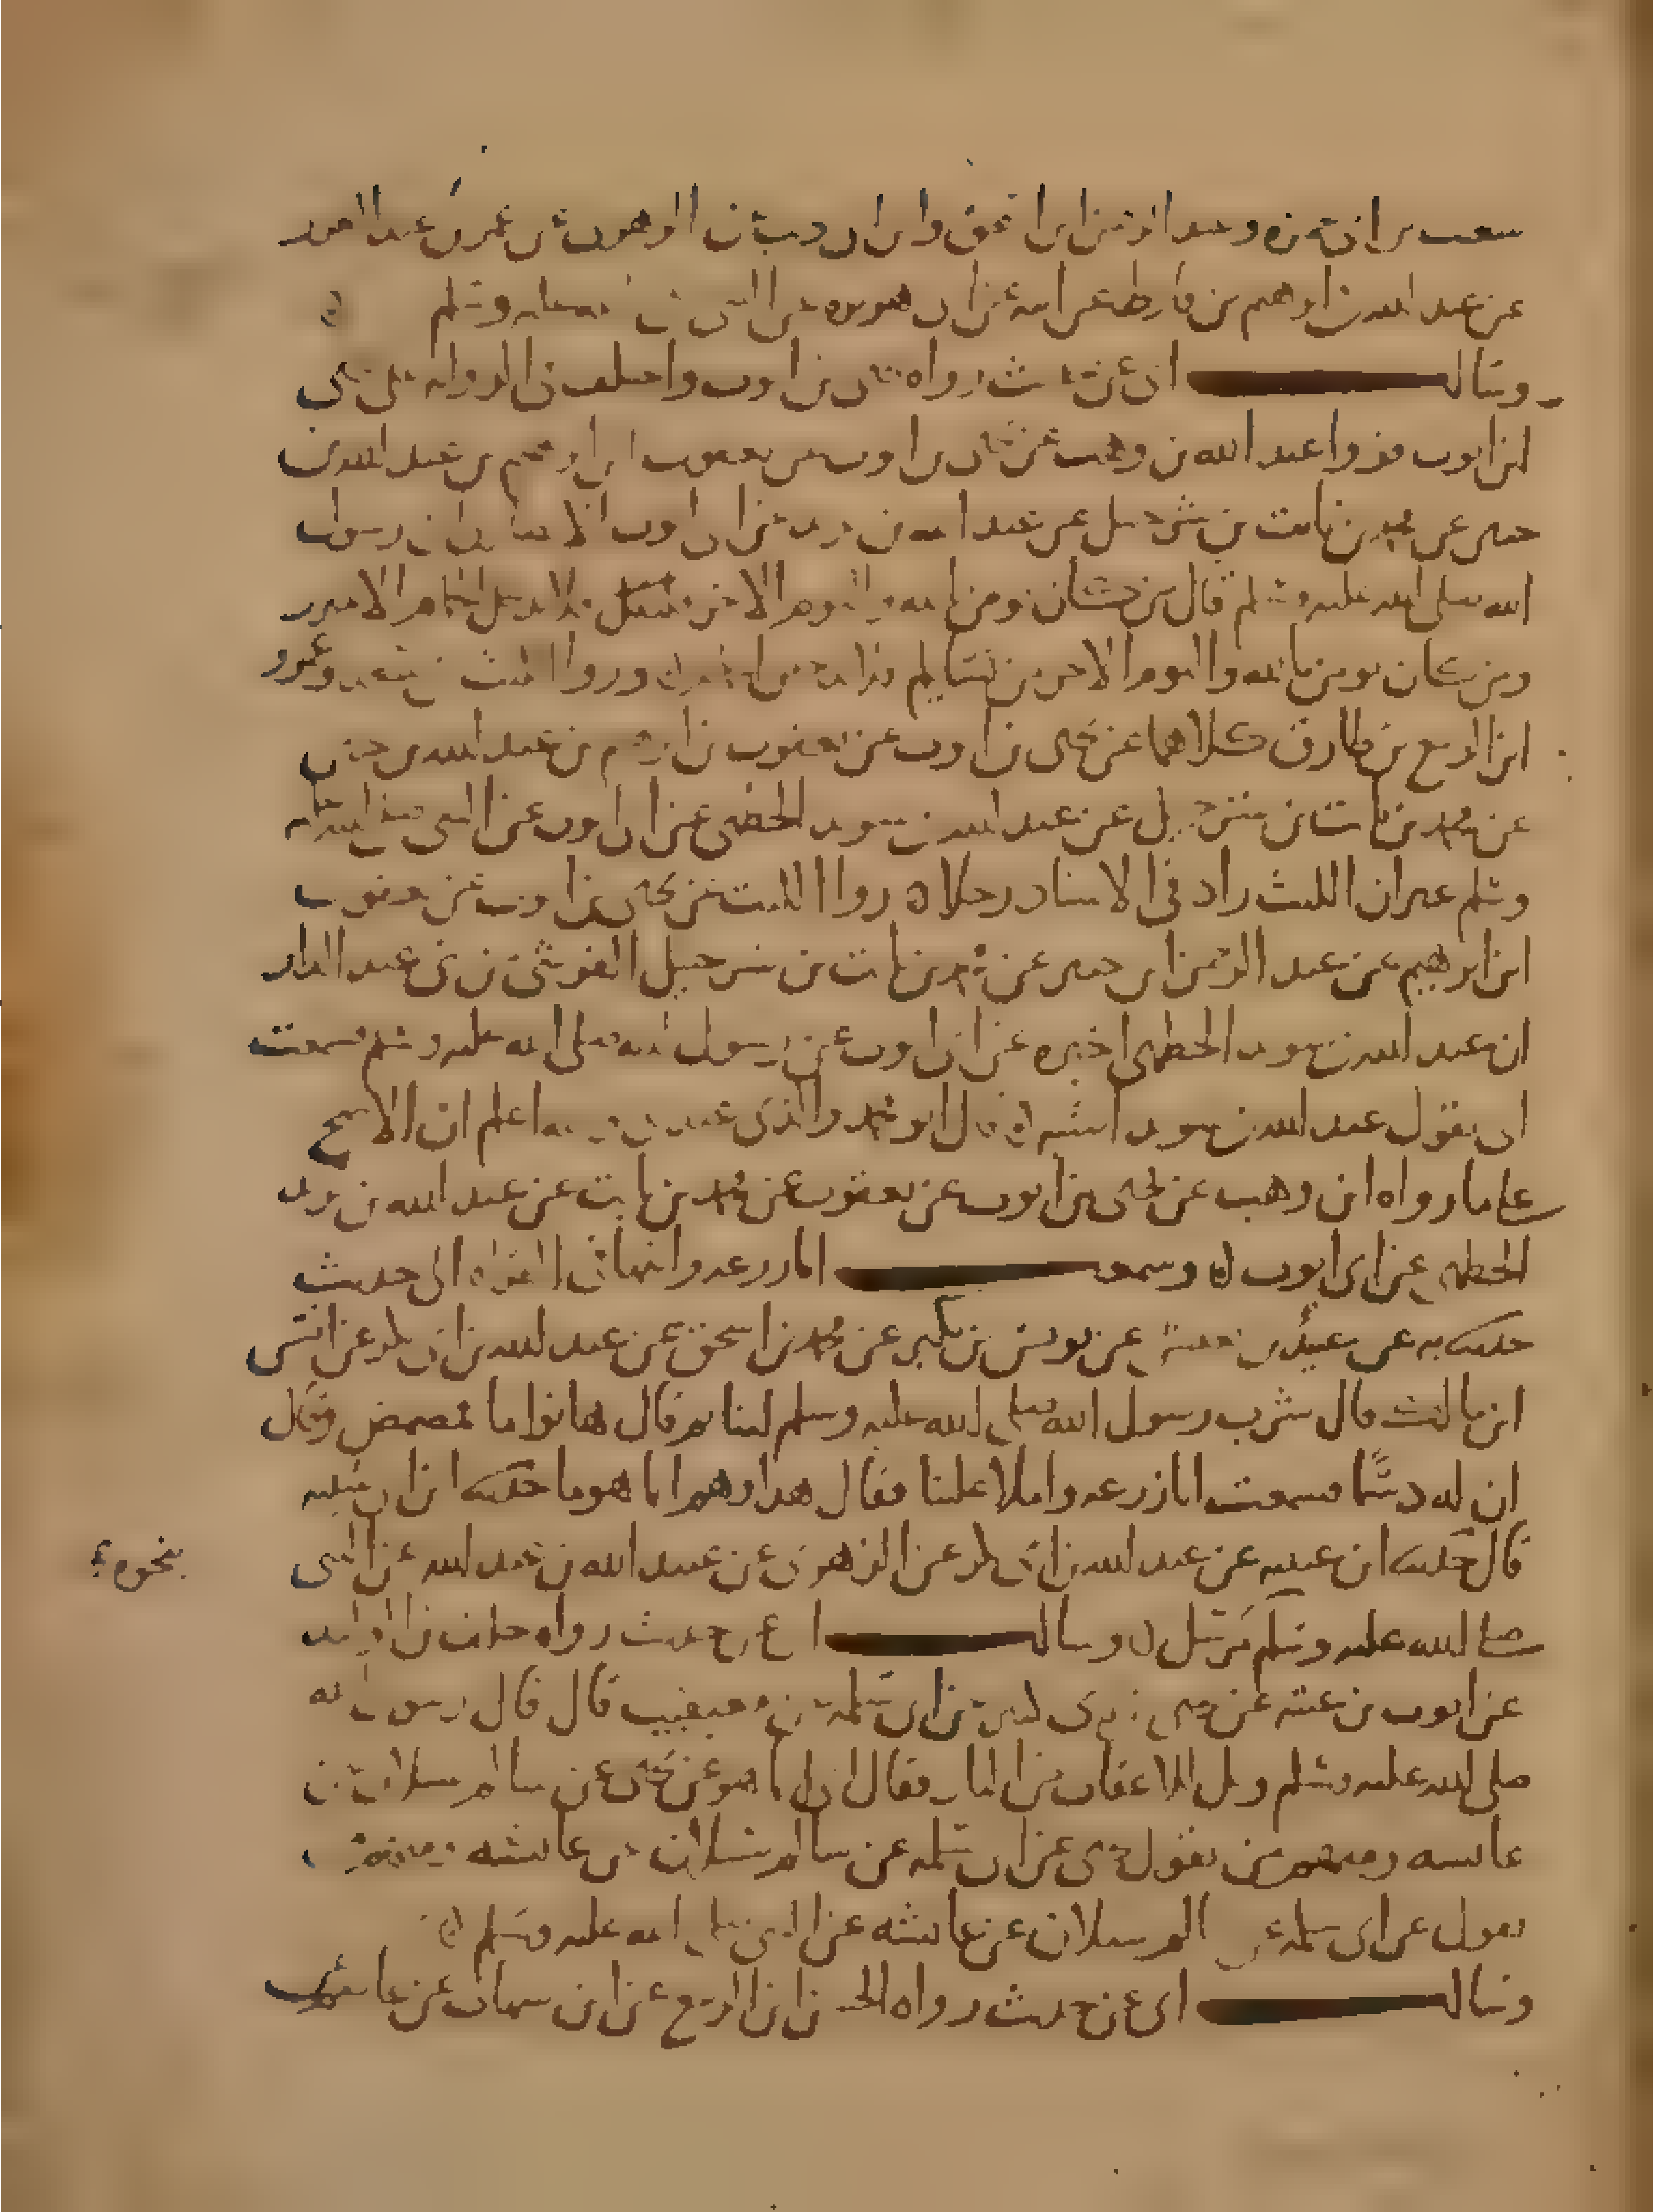 شعيب بن ابي حمزة وعبد الرحمن بن اسحق وابن ابي ذيب عن الزهري عن عمر بن عبد العزيز
عن عبد الله بن ابرهيم بن قارظ عن ابي هريره عن النبي صلى الله عليه وسلم
وسالت ابي عن حديث رواه يحيى بن ايوب واختلف في الروايه على يحيى
ابن ايوب فروا عبد الله بن وهب عن يحيى بن ايوب عن يعقوب بن ابرهيم عن عبد الله بن
حنين عن محمد بن ثابت بن شرحبيل عن عبد الله بن يزيد عن ابي ايوب الانصاري ان رسول
الله صلى الله عليه وسلم قال من كان يومن بالله واليوم الاخر فلا يدخل الحمام الا بميزر
ومن كان يومن بالله واليوم الاخر من نسايكم فلا يدخلن الحمام وروا الليث بن سعد وعمرو
ابن الربيع بن طارق كلاهما عن يحيى بن ايوب عن يعقوب بن ابرهيم عن عبد الله بن حنين
عن محمد بن ثابت بن شرحبيل عن عبد الله بن سويد الخطمي عن ابي ايوب عن النبي صلى الله عليه
وسلم غير ان الليث زاد في الاسناد رجلا روا الليث عن يحيى بن ايوب عن يعقوب
ابن ابرهيم عن عبد الرحمن بن جبير عن محمد بن ثابت بن شرحبيل القرشي من بني عبد الدار
ان عبد الله بن سويد الخطمي اخبره عن ابي ايوب عن رسول الله صلى الله عليه وسلم فسمعت
ابي يقول عبد الله بن سويد اشبه قال ابو محمد والذي عندي والله اعلم ان الاصح
على ما رواه ابن وهب عن يحيى بن ايوب عن يعقوب عن محمد بن ثابت عن عبد الله بن يزيد
الخطمي عن ابي ايوب وسمعت ابا زرعه وانتهى في القراه الى حديث
حدثنا به عن عبيد بن يعيش عن يونس بن بكير عن محمد بن اسحق عن عبد الله بن ابي بكر عن انس
ابن مالك قال شرب رسول الله صلى الله عليه وسلم لبنا ثم قال هاتوا ما فمضمض وقال
ان له دسما فسمعت ابا زرعه واملا علينا فقال هذا وهم انما هو ما حدثنا ابن ابي شيبه
قال حدثنا ابن عيينه عن عبد الله بن ابي بكر عن الزهري عن عبيد الله بن عبد الله عن النبي
بنحوه
صلى الله عليه وسلم مرسل وسالت ابي عن حديث رواه خلف بن الوليد
عن ايوب بن عتبه عن يحيى بن ابي كثير عن ابي سلمه عن معيقيب قال قال رسول الله
صلى الله عليه وسلم ويل للاعقاب من النار فقال ابي انما هو عن يحيى عن سالم سبلان عن
عايشه ومنهم من يقول يحيى عن ابي سلمه عن سالم سبلان عن عايشه ومنهم من
يقول عن ابي سلمه عن سالم سبلان عن عايشه عن النبي صلى الله عليه وسلم
وسالت ابي عن حديث رواه الحسن بن الربيع عن ابن سماك عن عايذ